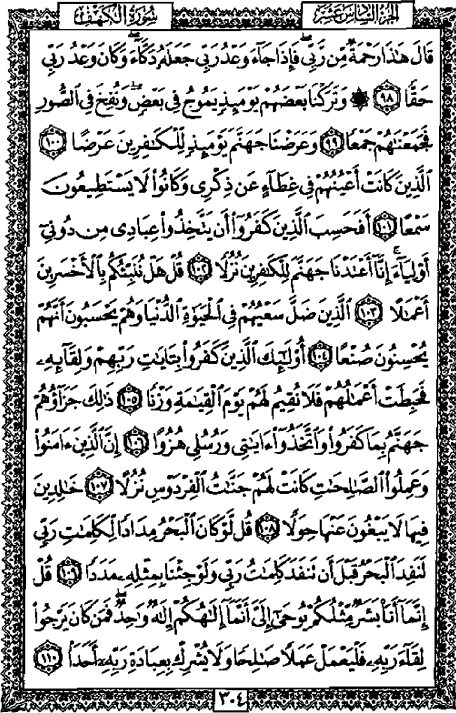 الجزء السادس عشر
سورة الكهف
قَالَ هَٰذَا رَحْمَةٌ مِّن رَّبِّي ۖ فَإِذَا جَآءَ وَعْدُ رَبِّي جَعَلَهُۥ دَكَّآءَ ۖ وَكَانَ وَعْدُ رَبِّي
حَقًّا ٩٨ ۞ وَتَرَكْنَا بَعْضَهُمْ يَوْمَئِذٍ يَمُوجُ فِي بَعْضٍ ۖ وَنُفِخَ فِي الصُّورِ
فَجَمَعْنَٰهُمْ جَمْعًا ٩٩ وَعَرَضْنَا جَهَنَّمَ يَوْمَئِذٍ لِّلْكَٰفِرِينَ عَرْضًا ١٠٠
الَّذِينَ كَانَتْ أَعْيُنُهُمْ فِي غِطَآءٍ عَن ذِكْرِي وَكَانُوا۟ لَا يَسْتَطِيعُونَ
سَمْعًا ١٠١ أَفَحَسِبَ الَّذِينَ كَفَرُوٓا۟ أَن يَتَّخِذُوا۟ عِبَادِي مِن دُونِيٓ
أَوْلِيَآءَ ۚ إِنَّآ أَعْتَدْنَا جَهَنَّمَ لِلْكَٰفِرِينَ نُزُلًا ١٠٢ قُلْ هَلْ نُنَبِّئُكُم بِالْأَخْسَرِينَ
أَعْمَٰلًا ١٠٣ الَّذِينَ ضَلَّ سَعْيُهُمْ فِي الْحَيَوٰةِ الدُّنْيَا وَهُمْ يَحْسَبُونَ أَنَّهُمْ
يُحْسِنُونَ صُنْعًا ١٠٤ أُو۟لَٰٓئِكَ الَّذِينَ كَفَرُوا۟ بِـَٔايَٰتِ رَبِّهِمْ وَلِقَآئِهِۦ
فَحَبِطَتْ أَعْمَٰلُهُمْ فَلَا نُقِيمُ لَهُمْ يَوْمَ الْقِيَٰمَةِ وَزْنًا ١٠٥ ذَٰلِكَ جَزَآؤُهُمْ
جَهَنَّمُ بِمَا كَفَرُوا۟ وَاتَّخَذُوٓا۟ ءَايَٰتِي وَرُسُلِي هُزُوًا ١٠٦ إِنَّ الَّذِينَ ءَامَنُوا۟
وَعَمِلُوا۟ الصَّٰلِحَٰتِ كَانَتْ لَهُمْ جَنَّٰتُ الْفِرْدَوْسِ نُزُلًا ١٠٧ خَٰلِدِينَ
فِيهَا لَا يَبْغُونَ عَنْهَا حِوَلًا ١٠٨ قُل لَّوْ كَانَ الْبَحْرُ مِدَادًا لِّكَلِمَٰتِ رَبِّي
لَنَفِدَ الْبَحْرُ قَبْلَ أَن تَنفَدَ كَلِمَٰتُ رَبِّي وَلَوْ جِئْنَا بِمِثْلِهِۦ مَدَدًا ١٠٩ قُلْ
إِنَّمَآ أَنَا۠ بَشَرٌ مِّثْلُكُمْ يُوحَىٰٓ إِلَيَّ أَنَّمَآ إِلَٰهُكُمْ إِلَٰهٌ وَٰحِدٌ ۖ فَمَن كَانَ يَرْجُوا۟
لِقَآءَ رَبِّهِۦ فَلْيَعْمَلْ عَمَلًا صَٰلِحًا وَلَا يُشْرِكْ بِعِبَادَةِ رَبِّهِۦٓ أَحَدًۢا ١١٠
٣٠٤